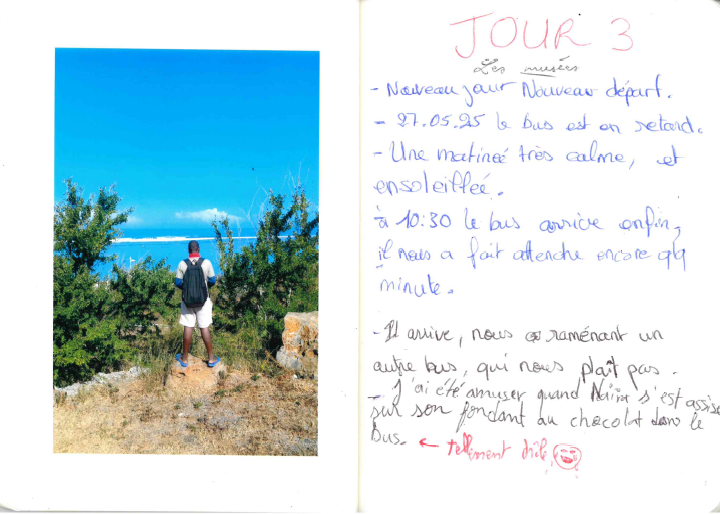 JOUR 3
Les musées
- Nouveau jour Nouveau départ.
- 27.05.25 le bus est en retard.
- Une matineé très calme, et
ensoleillée.
à 10:30 le bus arrive enfin,
il nous a fait attendre encore qq
minute.
- Il arrive, nous raménant un
autre bus, qui nous plaît pas.
- J'ai été amuser quand Naïra s'est assise
sur son fondant au chocolat dans le
bus.
← tellement drôle!